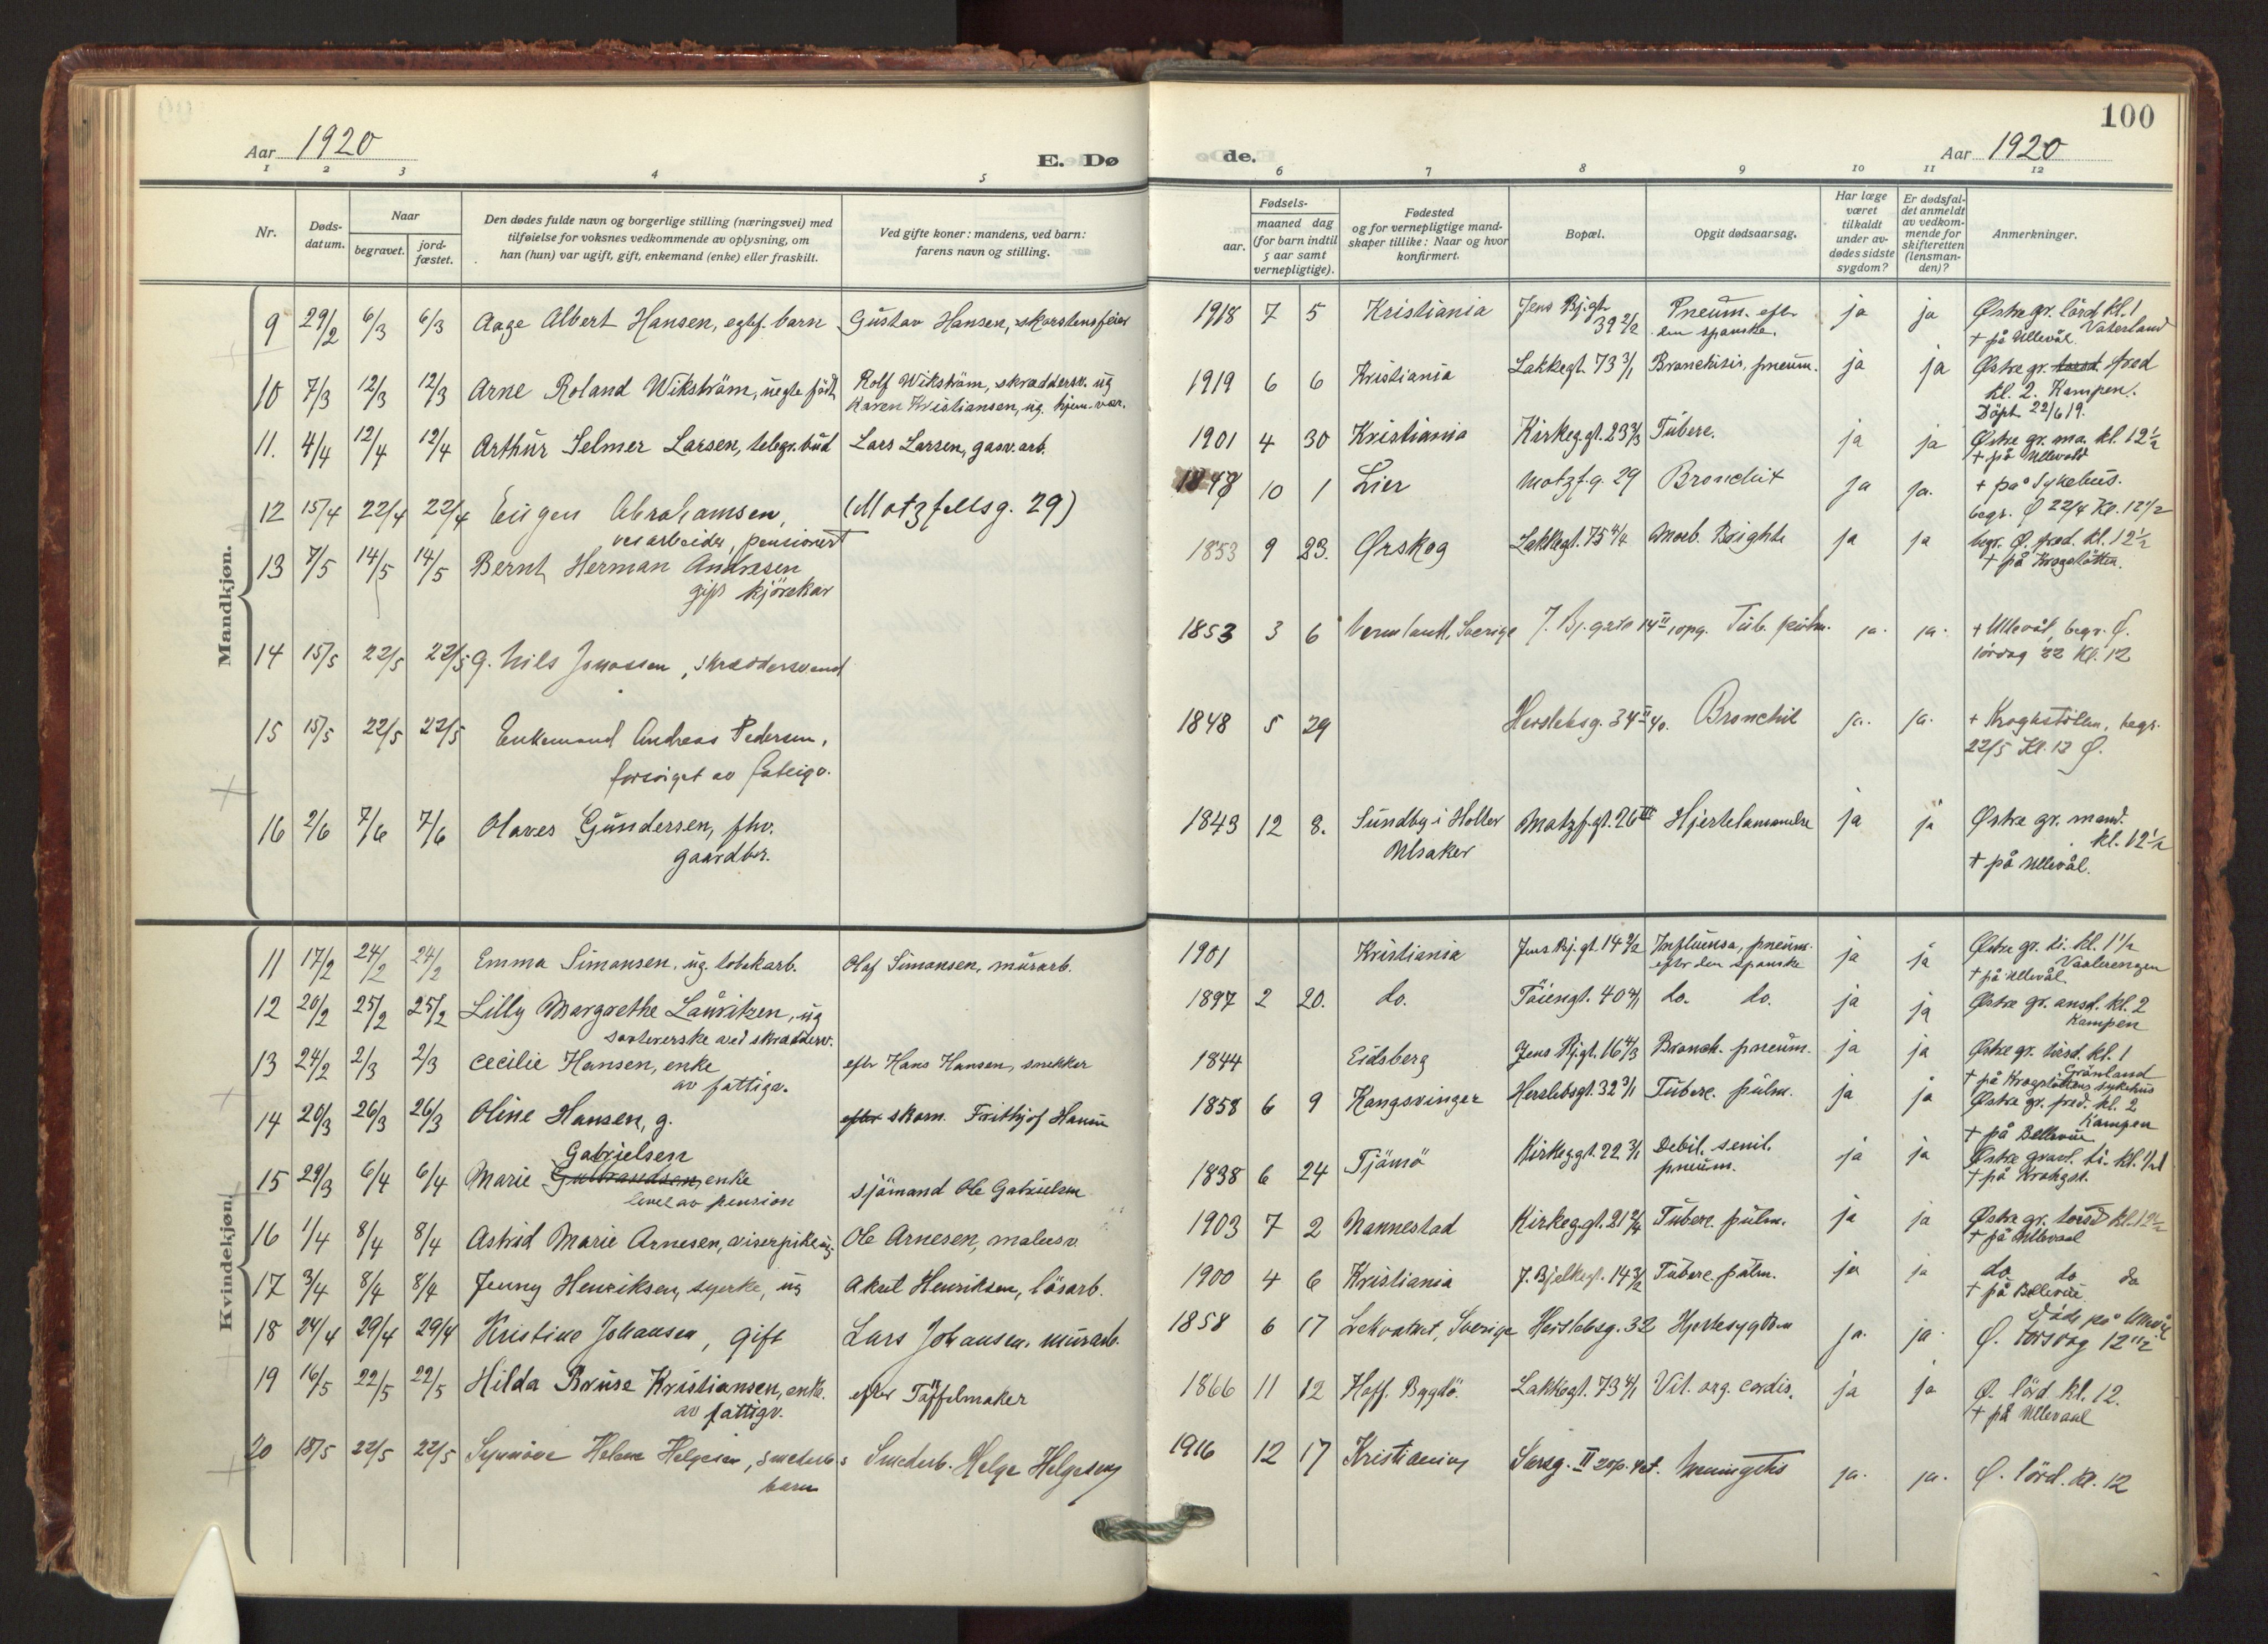 100
Aar 1920
E. Dø
de.
Aar 1920
1 2 3 4 5 6 7 8 9 10 11 12
Nr.
Døds-
datum.
Naar
begravet.
jord-
fæstet.
Den dødes fulde navn og borgerlige stilling (næringsvei) med
tilføielse for voksnes vedkommende av oplysning, om
han (hun) var ugift, gift, enkemand (enke) eller fraskilt.
Ved gifte koner: mandens, ved barn:
farens navn og stilling.
Fødsels-
aar.
maaned dag
(for barn indtil
5 aar samt
vernepligtige).
Fødested
og for vernepligtige mand-
skaper tillike: Naar og hvor
konfirmert.
Bopæl.
Opgit dødsaarsag.
Har læge
været
tilkaldt
under av-
dødes sidste
sygdom?
Er dødsfal-
det anmeldt
av vedkom-
mende for
skifteretten
(lensman-
den)?
Anmerkninger.
Mandkjøn.
9 29/2 6/3 6/3 Aage Albert Hansen, egtef. barn Gustav Hansen, skorstensfeier 1918 7 5 Kristiania Jens Bj.gt. 39 2/2 Pneum. efter den spanske. ja ja Østre gr. lörd. kl. 1
Vaterland
+ på Ullevål.
10 7/3 12/3 12/3 Arne Roland Wikström, uegte født Rolf Wikström, skræddersv. ug 1919 6 6 Kristiania Lakkegt. 73 3/1 Bronchitis, pneum. ja ja Østre gr. fred
Karen Kristiansen, ug. hjem. vær. kl. 2. Kampen.
Döpt 22/6 19.
11. 4/4 12/4 12/4 Arthur Selmer Larsen, telegr. bud Lars Larsen, gasv. arb. 1901 4 30 Kristiania Kirkeg.gt. 23 3/3 Tuberc. ja ja Østre gr. ma. kl. 12 1/2
+ på Ullevold
12 15/4 22/4 22/4 Eugen Abrahamsen, (Motzfeltsg. 29) 10 1 Lier Motzf.g. 29 Bronchit ja ja. + på Sykehus.
veiarbeider, pensionert begr. Ø 22/4 Kl. 12 1/2
13 7/5 14/5 14/5 Bernt Herman Andresen 1853 9 23. Ørskog Lakkegt. 75 4/4 Morb. Brightii ja ja begr. Ø. fred. kl. 12 1/2
gift kjörekar + på Krogstötten.
14 15/5 22/5 22/5 g. Nils Jonassen, skræddersvend 1853 3 6 Vermland, Sverige J. Bj. gate 14 II opg. Tub. pulm. ja. ja. + Ullevål, begr. Ø.
lördag 22 Kl. 12
15 15/5 22/5 22/5 Enkemand Andreas Pedersen, 1848 5 29 Herslebsg. 34 II Bronchit ja. ja. + Kroghstötten, begr.
forsörget av fatteigv. 22/5 Kl. 12 Ø.
16 2/6 7/6 7/6 Olaves Gundersen, fhv. 1843 12 8. Sundby i Holter Motzf.gt. 26 III Hjertelammelse ja ja Østre gr. mand.
gaardbr. Ulsaker kl. 12 1/2
+ på Ullevål.
Kvindekjøn.
11 17/2 24/2 24/2 Emma Simonsen, ug. tobakarb. Olaf Simonsen, murarb. 1901 Kristiania Jens Bj.gt. 14 2/2 Influensa, pneum. ja ja Østre gr. ti. kl. 1 1/2
efter den spanske Vaalerengen
+ på Ullevål
12 20/2 25/2 25/2 Lilly Margrethe Lauritzen, ug 1897 2 20. do. Töiengt. 40 4/1 do. do. ja ja Østre gr. onsd. kl. 2
sorterske Kampen
13 24/2 2/3 2/3 Cecilie Hansen, enke efter Hans Hansen, snekker 1844 Eidsberg Jens Bj.gt. 16 4/3 Bronch. pneum. ja ja Østre gr. tirsd. kl. 1
av fattigv. Grönland
+ på Krogstöttens sykehus
14 20/3 26/3 26/3 Oline Hansen, g. efter skom. Frithjof Hansen 1858 6 9 Kongsvinger Herslebsgt. 32 3/1 Tuberc. pulm. ja ja Østre gr. fred. kl. 2
Kampen
+ på Bellevue
15 29/3 6/4 6/4 Marie Gulbrandsen Gabrielsen enke sjömand Ole Gabrielsen 1838 6 24 Tjömö Kirkeg.gt. 22 3/1 Debil. senil. pneum. ja ja Østre gravl. ti. kl. 1/2 1
lever av pension + på Krohgst.
16 1/4 8/4 8/4 Astrid Marie Arnesen, aviserpike ug. Ole Arnesen, malersv. 1903 7 2 Nannestad Kirkeg.gt. 21 2/4 Tuberc. pulm. ja ja Østre gr. torsd kl. 12 1/2
+ på Ullevaal
17 3/4 8/4 8/4 Jenny Henriksen, syerske, ug Aksel Henriksen, lösarb. 1900 4 6 Kristiania J. Bjelkegt. 14 3/2 Tuberc. pulm. ja ja do do do
+ på Bellevue
18 24/4 29/4 29/4 Kristine Johansen, gift Lars Johansen, murarb. 1858 6 17 Lekvattnet, Sverige Herslebsg. 32 Hjertesygdom ja. ja. Död på Ullevål
Ø. torsdag 12 1/2
19 16/5 22/5 22/5 Hilda Bruse Kristiansen, enke. efter Töffelmaker 1866 11 12 Hoff. Bygdö. Lakkegt. 73 4/1 Vit. org. cordis. ja ja Ø. lörd. kl. 12.
av fattigv. + på Ullevaal
20 18/5 22/5 22/5 Synnöve Helene Helgesen, smedarb.s Smedarb. Helge Helgesen 1916 12 17 Kristiania Sarsg. II Meningitis ja. ja. Ø. lörd. kl. 12
barn